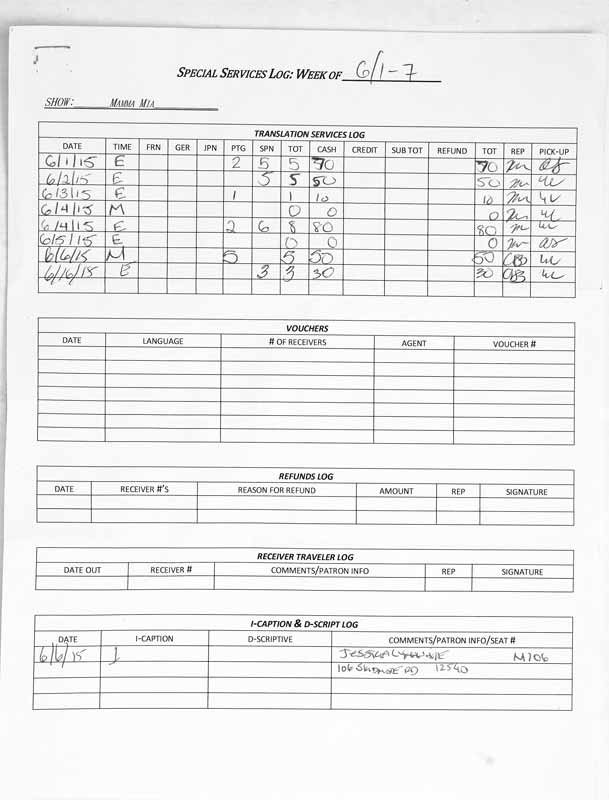 SPECIAL SERVICES LOG: WEEK OF 6/1-7
SHOW: MAMMA MIA
TRANSLATION SERVICES LOG
DATE TIME FRN GER JPN PTG SPN TOT CASH CREDIT SUB TOT REFUND TOT REP PICK-UP
6/1/15 E 2 5 5 70 70
6/2/15 E 5 5 50 50
6/3/15 E 1 1 10 10
6/4/15 M 0 0 0
6/4/15 E 2 6 8 80 80
6/5/15 E 0 0 0
6/6/15 M 5 5 50 50
6/16/15 E 3 3 30 30
VOUCHERS
DATE LANGUAGE # OF RECEIVERS AGENT VOUCHER #
REFUNDS LOG
DATE RECEIVER #'S REASON FOR REFUND AMOUNT REP SIGNATURE
RECEIVER TRAVELER LOG
DATE OUT RECEIVER # COMMENTS/PATRON INFO REP SIGNATURE
I-CAPTION & D-SCRIPT LOG
DATE I-CAPTION D-SCRIPTIVE COMMENTS/PATRON INFO/SEAT #
6/6/15 1 JESSICA M106
106 RD 12540